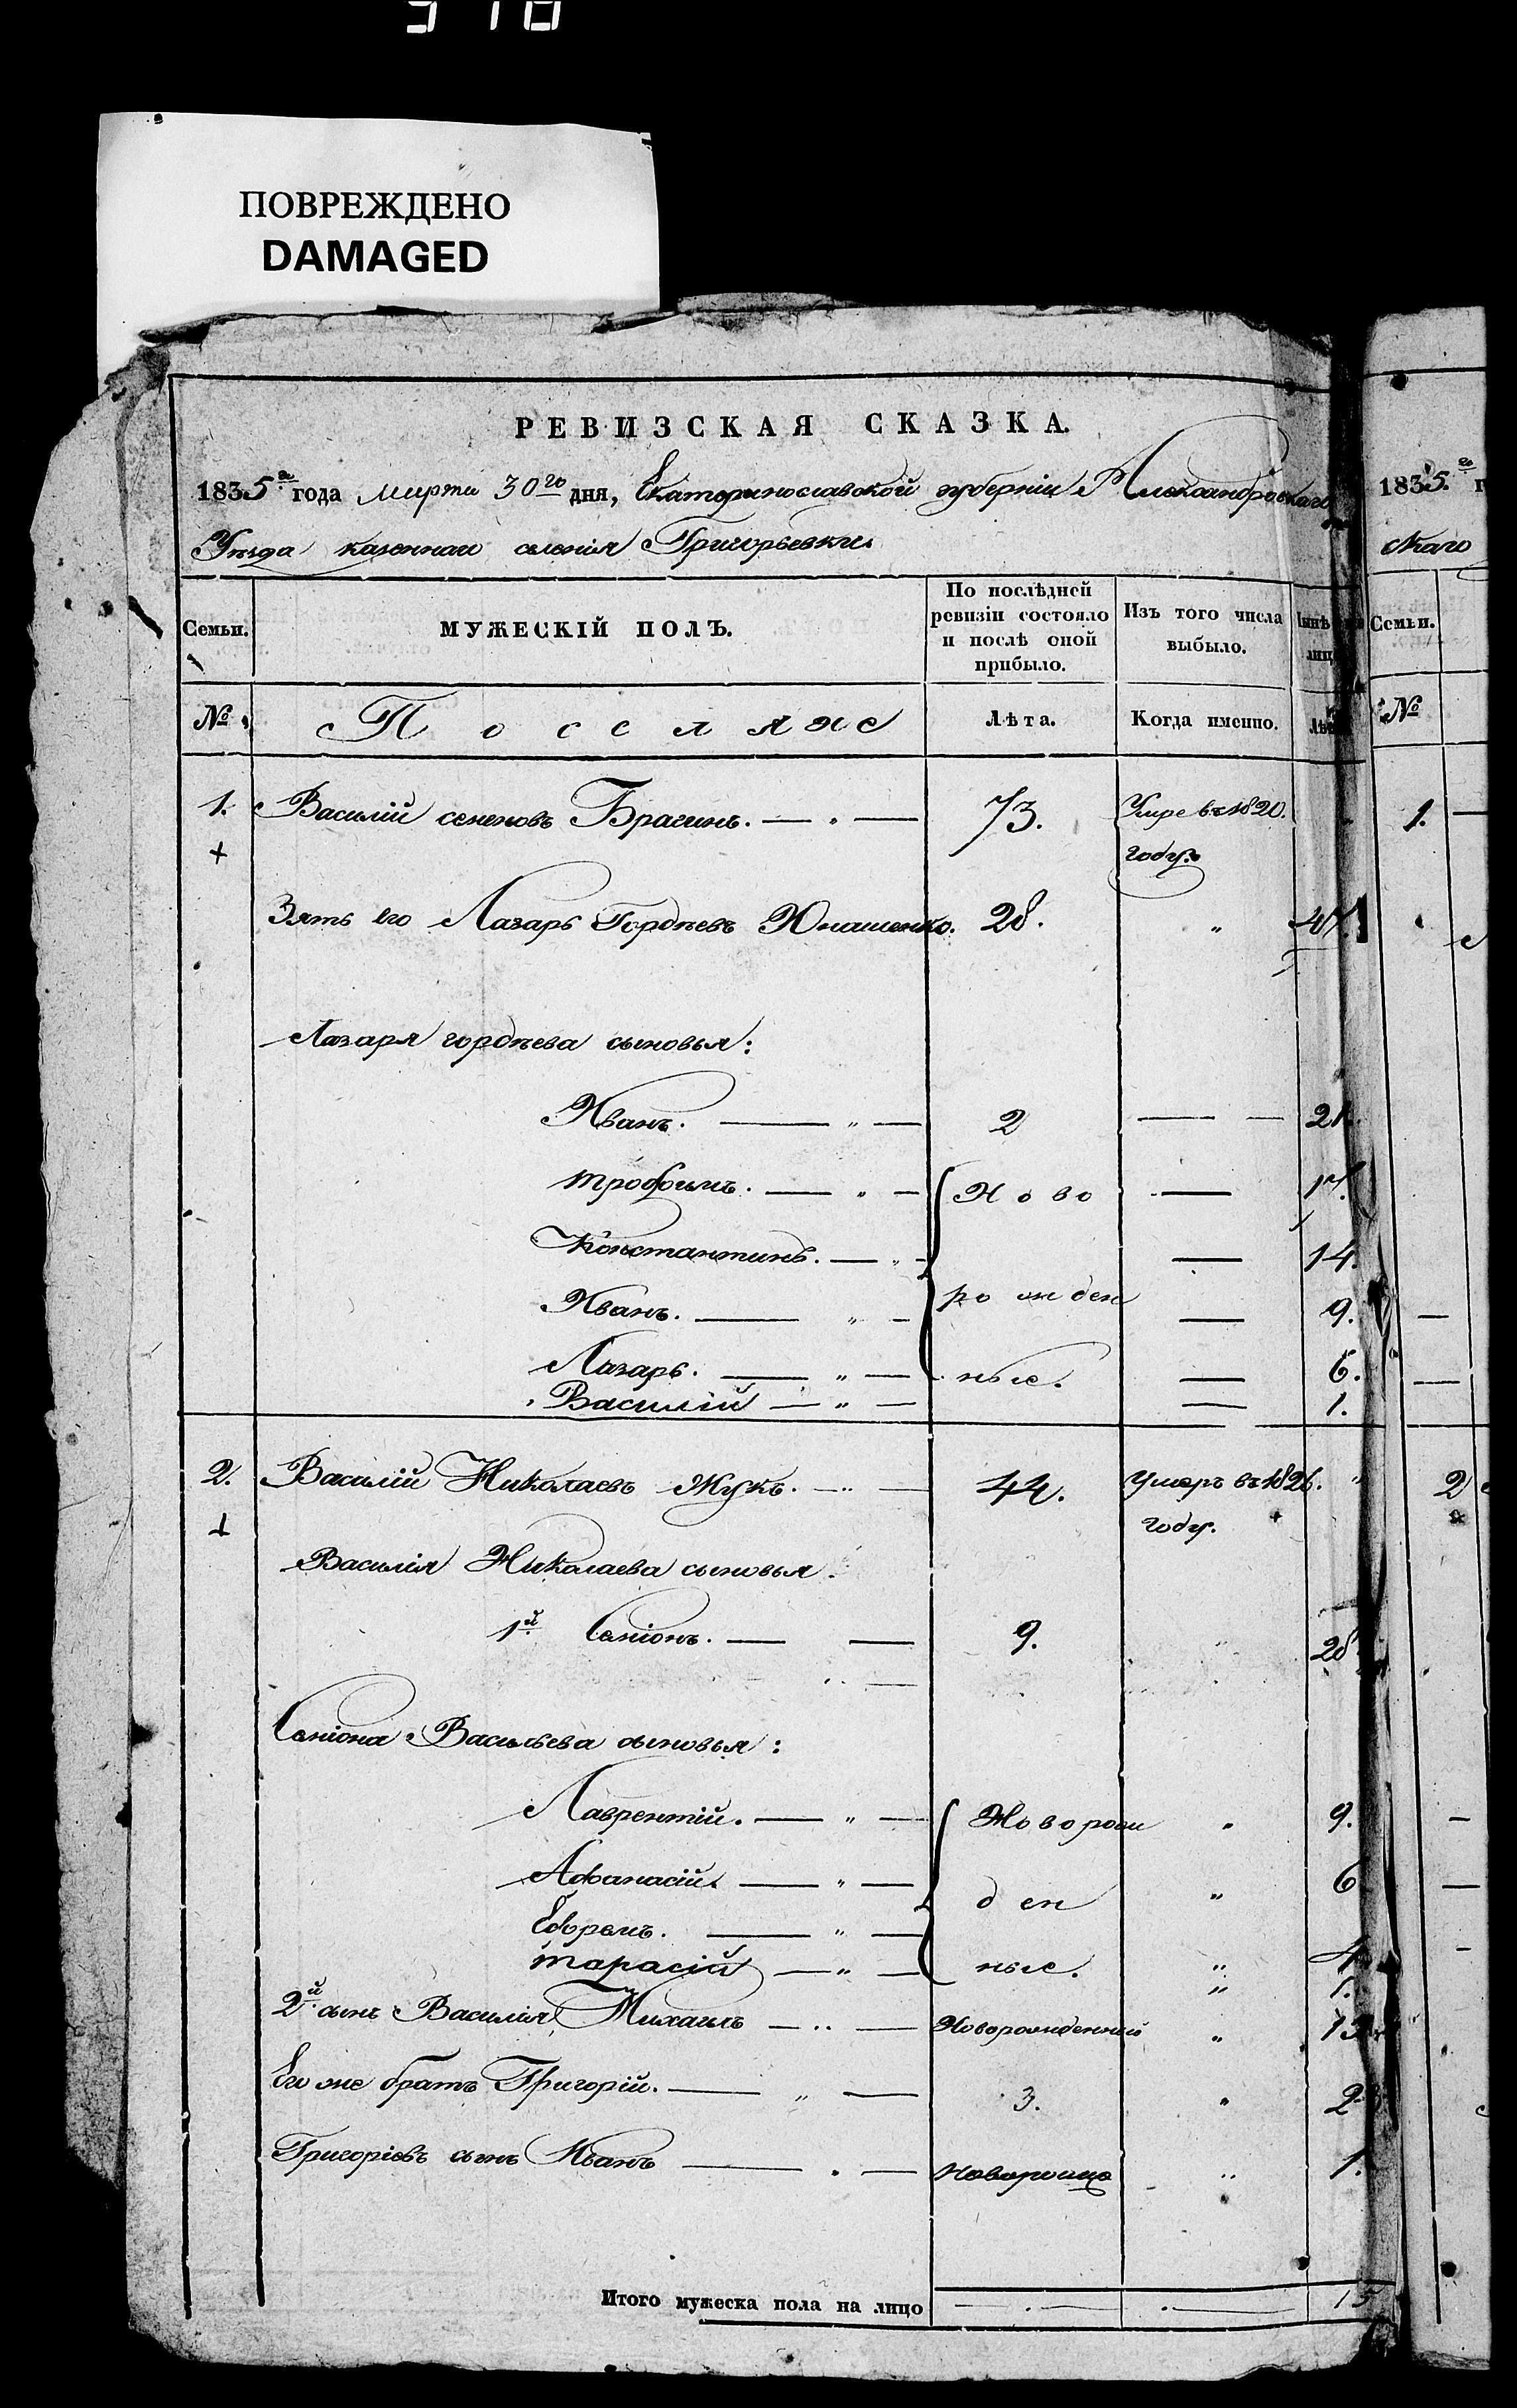 ПОВРЕЖДЕНО
DAMAGED
РЕВИЗСКАЯ СКАЗКА.
1835го года Марта 30го дня, Екатеринославской губернии Александровскаго
Уезда казеннаго селенія Григорьевки
Семьи. МУЖЕСКІЙ ПОЛЪ. По послѣдней ревизіи состояло и послѣ оной прибыло. Изъ того числа выбыло.
№ Поселяне Лѣта. Когда именно.
1. Василій семеновъ Брагинъ. 73. Умре въ 1820.
году.
Зять его Лазарь Гордѣевъ Юнашенко. 28. " 47.
Лазаря гордѣева сыновья:
Иванъ. " 2 21.
трофимъ. " Ново 17.
Константинъ. " 14.
Иванъ. " рожден 9.
Лазарь. " ные. 6.
Василій " 1.
2. Василій Николаевъ Жукъ. 44. Умеръ въ 1826.
году.
Василія Николаева сыновья.
1й Семіонъ. 9. 28
Семіона Васильева сыновья:
Лаврентій. " Новорож " 9.
Афанасій. " ден " 6
Ефремъ. " 4
тарасій " ные. " 1.
2й сынъ Василія Михаилъ Новорожденный " 13
Его же братъ Григорій. " 3. "
Григоріевъ сынъ Иванъ " 1.
Итого мужеска пола на лицо 15
1835.го г
скаго
Семьи.
№
1.
2